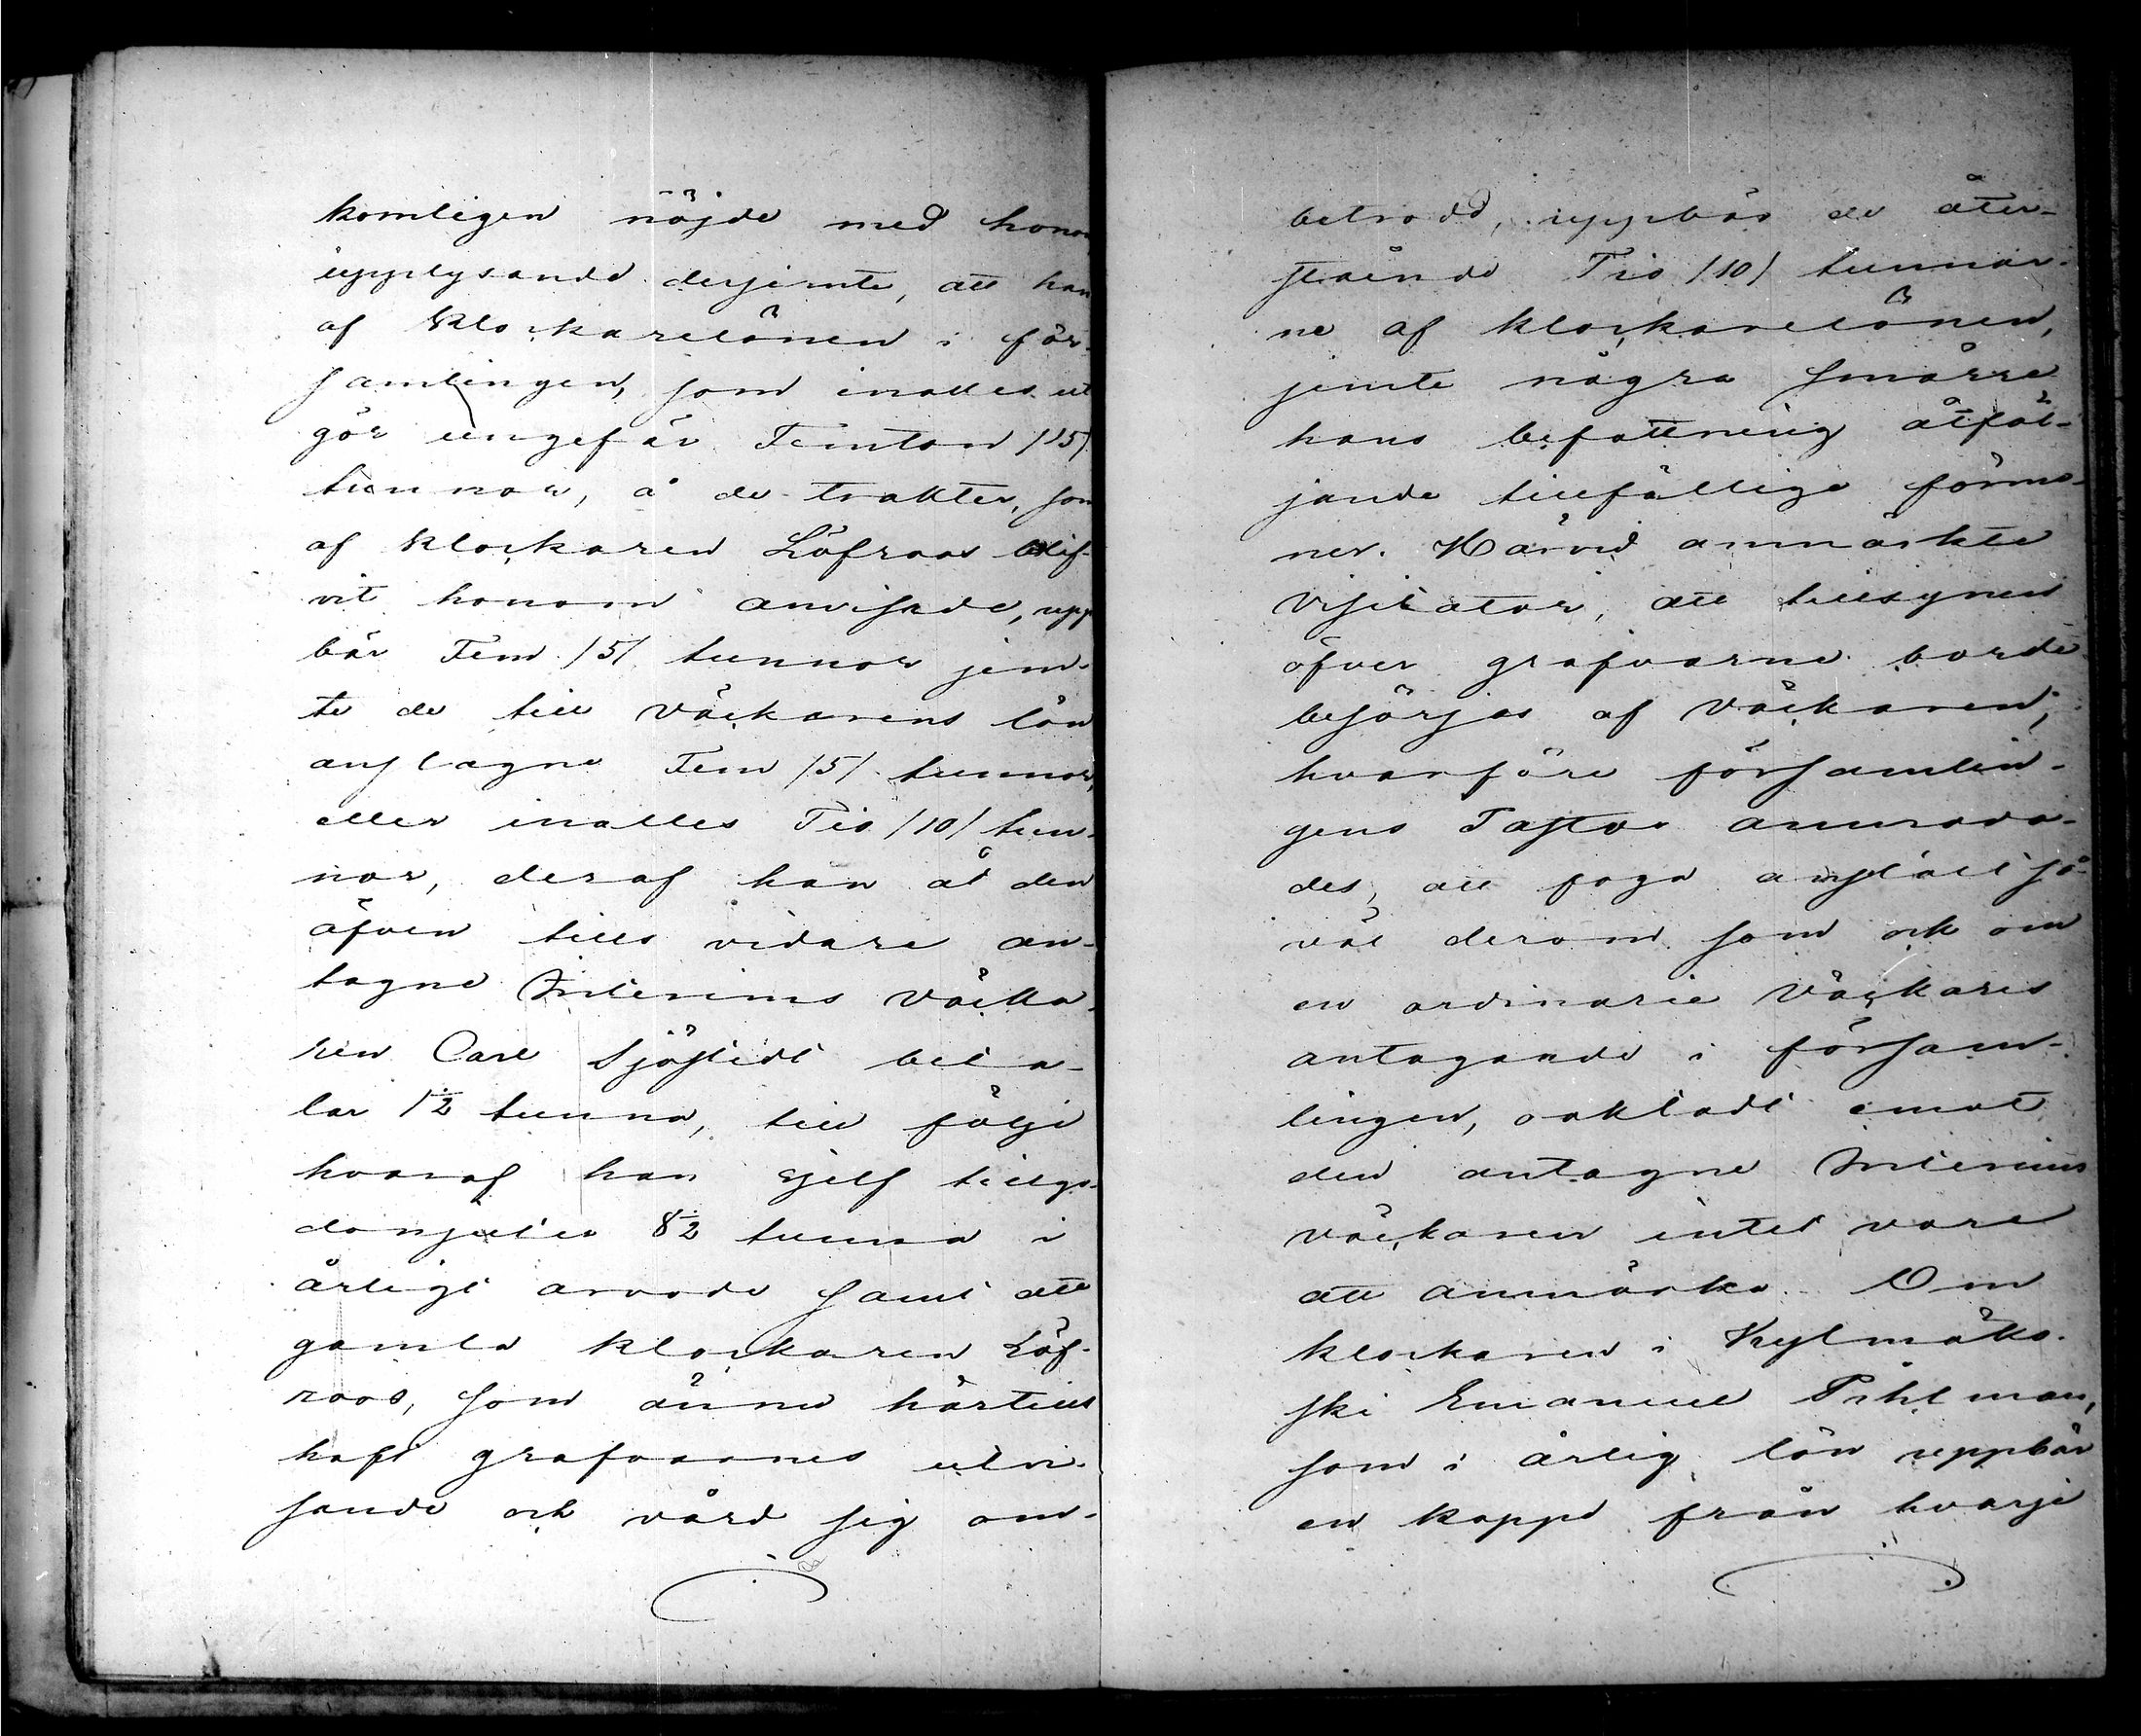 komligen nöjde med honom
upplysande derjemte, att han
af Klockarelönen i för-
samlingen, som inalles ut
gör ungefär Femton /15/
tunnor, å de trakter, som
af klockaren Löfroos blif-
vit honom anvisade, upp
bär Fem /5/ tunnor jem-
te de till Väckarens lön
anslagne Fem /5/ tunnor,
eller inalles Tio /10/ tun-
nor, deraf han åt den
äfven tills vidare an-
tagne Interims Väcka-
ren Carl Sjöstedt beta-
lar 1½ tunna, till följe
hvaraf han sjelf tillgo-
donjuter 8½ tunna i
årligt arvode samt att
gamla klockaren Löf-
roos, som ännu härtills
haft grafvarnes utvi-
sande och vård sig om-
betrodd, uppbär de åter-
stående Tio /10/ tunnor-
ne af klockarelönen,
jemte några smärre
hans befattning åtföl-
jande tillfällige förmo-
ner. Härvid anmärkte
Visitator, att tillsynen
öfver grafvarne borde
besörjas af Väckaren,
hvarföre församlin-
gens Pastor anmoda-
des, att foga anstalt så-
väl derom som ock om
en ordinarie Väckares
antagande i försam-
lingen, oaktadt emot
den antagne Interims
väckaren intet vore
att anmärka. Om
klockaren i Kylmäko-
ski Emanuel Pihlman,
som i årlig lön uppbär
en kappe från hvarje